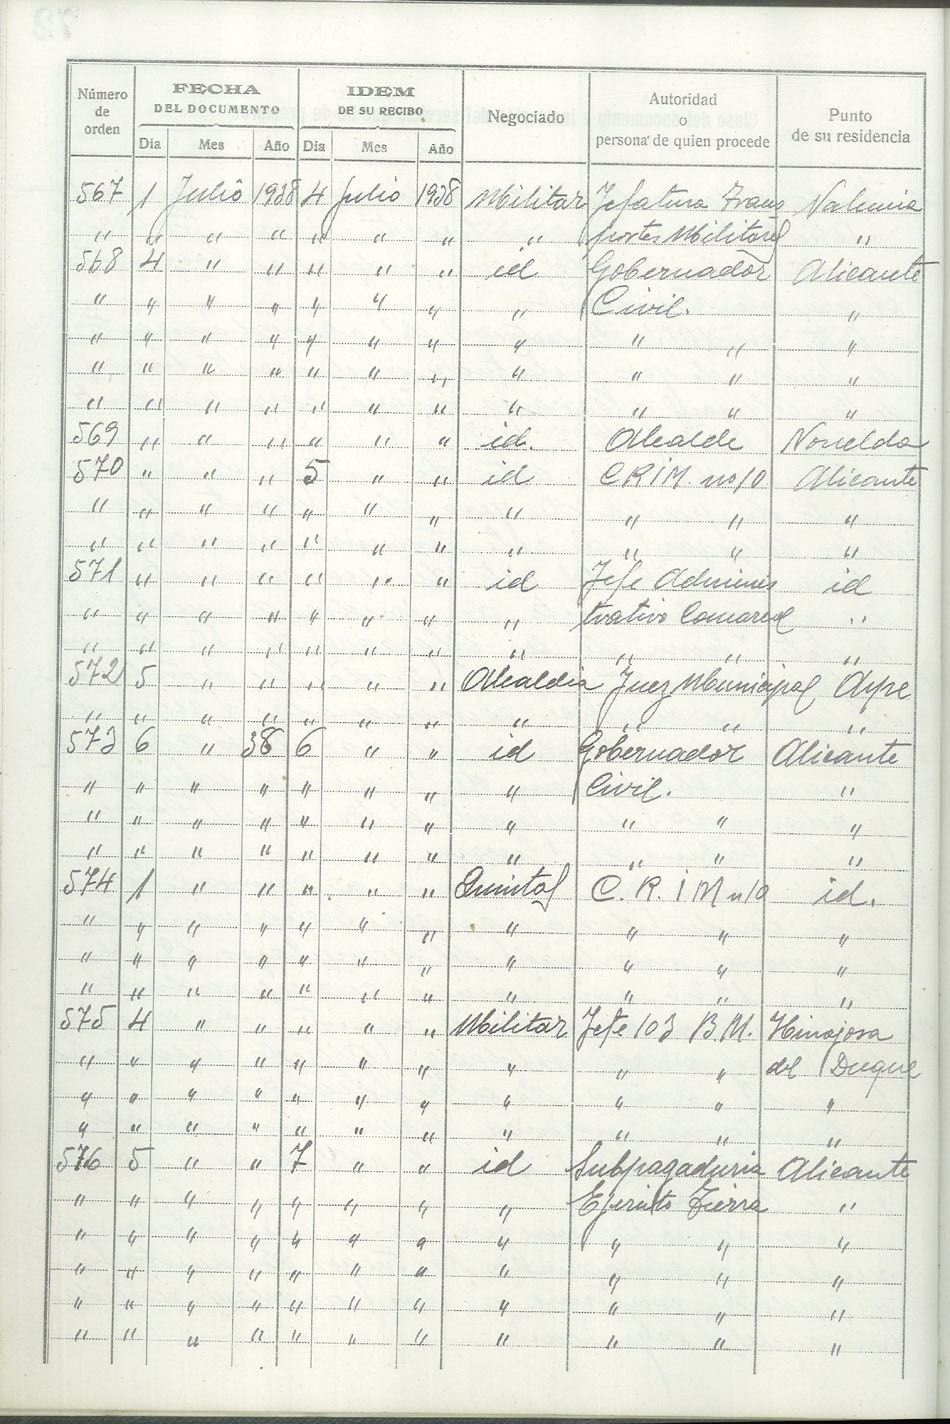 Número de orden FECHA DEL DOCUMENTO IDEM DE SU RECIBO Negociado Autoridad o persona de quien procede Punto de su residencia
Dia Mes Año Dia Mes Año
567 1 Julio 1938 4 Julio 1938 Militar Jefatura Trans Valencia
" " " " " " " " portes Militares "
568 4 " " " " " id Gobernador Alicante
" " " " " " " " Civil. "
" " " " " " " " " " "
" " " " " " " " " " "
" " " " " " " " " " "
569 " " " " " " id. Alcalde Novelda
570 " " " 5 " " id CRIM. nº 10 Alicante
" " " " " " " " " " "
" " " " " " " " " " "
571 " " " " " " id Jefe Adminis id
" " " " " " " " trativo Comarcal "
" " " " " " " " " " "
572 5 " " " " " Alcaldia Juez Municipal Aspe
" " " " " " " " " " "
573 6 " 38 6 " " id Gobernador Alicante
" " " " " " " " Civil. "
" " " " " " " " " " "
" " " " " " " " " " "
574 1 " " " " " Quintas C. R. I M n 10 id.
" " " " " " " " " " "
" " " " " " " " " " "
" " " " " " " " " " "
575 4 " " " " " Militar Jefe 103 B.M. Hinojosa
" " " " " " " " " " del Duque
" " " " " " " " " " "
" " " " " " " " " " "
576 5 " " 7 " " id Subpagaduria Alicante
" " " " " " " " Ejercito Tierra "
" " " " " " " " " " "
" " " " " " " " " " "
" " " " " " " " " " "
" " " " " " " " " " "